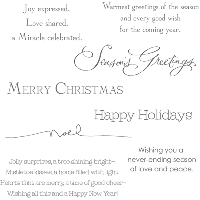 Joy expressed.
Love shared.
a Miracle celebrated.
Warmest greetings of the season
and every good wish
for the coming year.
Season's Greetings,
Merry Christmas
Happy Holidays
noel
Wishing you a
never ending season
of love and peace.
Joyful surprises, a tree shining bright~
Mistletoe kisses, a home filled with light.
Hearts that are merry, a time of good cheer~
Wishing all this and a Happy New Year!